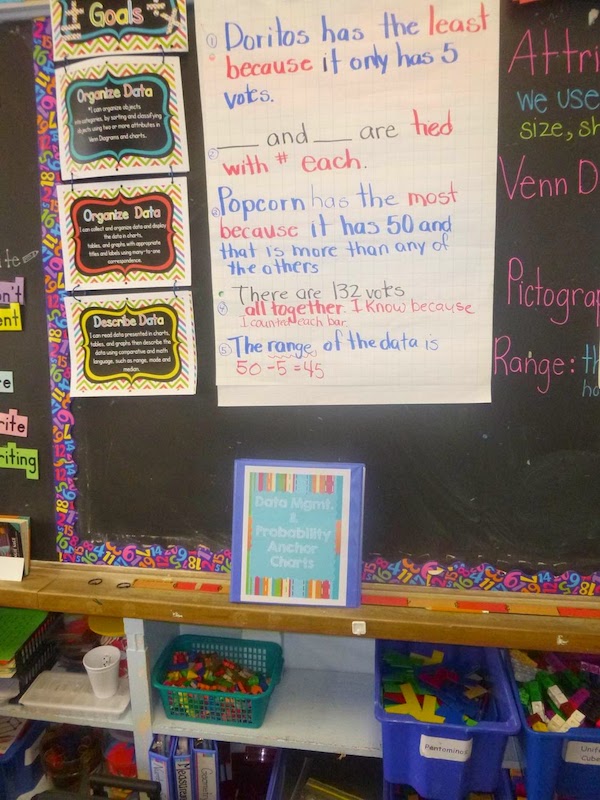 Goals
Organize Data
*I can organize objects
into categories, by sorting and classifying
objects using two or more attributes in
Venn Diagrams and charts.
Organize Data
I can collect and organize data and display
the data in
charts,
tables, and graphs with appropriate
titles and labels using many-to-one
correspondence.
Describe Data
I can read data presented in charts,
tables, and graphs then describe the
data using comparative and math
language, such as range, mode and
median.
① Doritos has the least
because it only has 5
votes.
___ and ___ are tied
with # each.
Popcorn has the most
because it has 50 and
that is more than any of
the others
There are 132 votes
④ all together. I know because
I counted each bar.
⑤ The range of the data is
50 - 5 = 45
Attri
we use
size, sh
Venn D
Pictograp
Range: th
ho
n't
ent
re
rite
riting
Data Mgmt.
&
Probability
Anchor
Charts
Pentominoes
Unifi
Cube